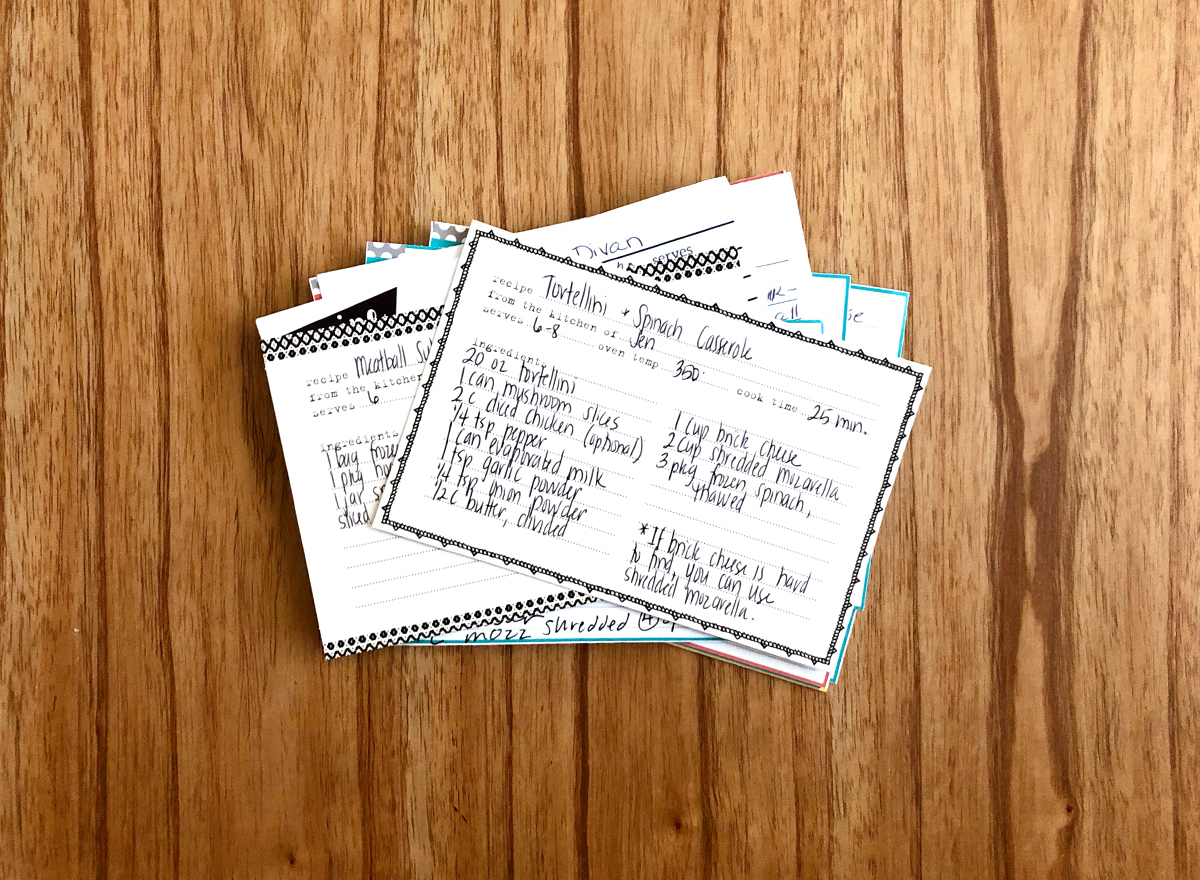 Divan
serves
all
recipe Tortellini + Spinach Casserole
from the kitchen of Jen
serves 6-8 oven temp 350° cook time 25 min.
ingredients
20 oz tortellini
1 can mushroom slices
2 c diced chicken (optional)
1/4 tsp pepper
1 can evaporated milk
1 tsp garlic powder
1/4 tsp onion powder
1/2 c butter, divided
1 cup brick cheese
2 cup shredded mozarella
3 pkg frozen spinach,
thawed
*If brick cheese is hard
to find, you can use
shredded mozarella.
recipe Meatball
from the kitchen
serves 6
ingredients
1 bag frozen
1 pkg
1 jar
sliced
mozz shredded